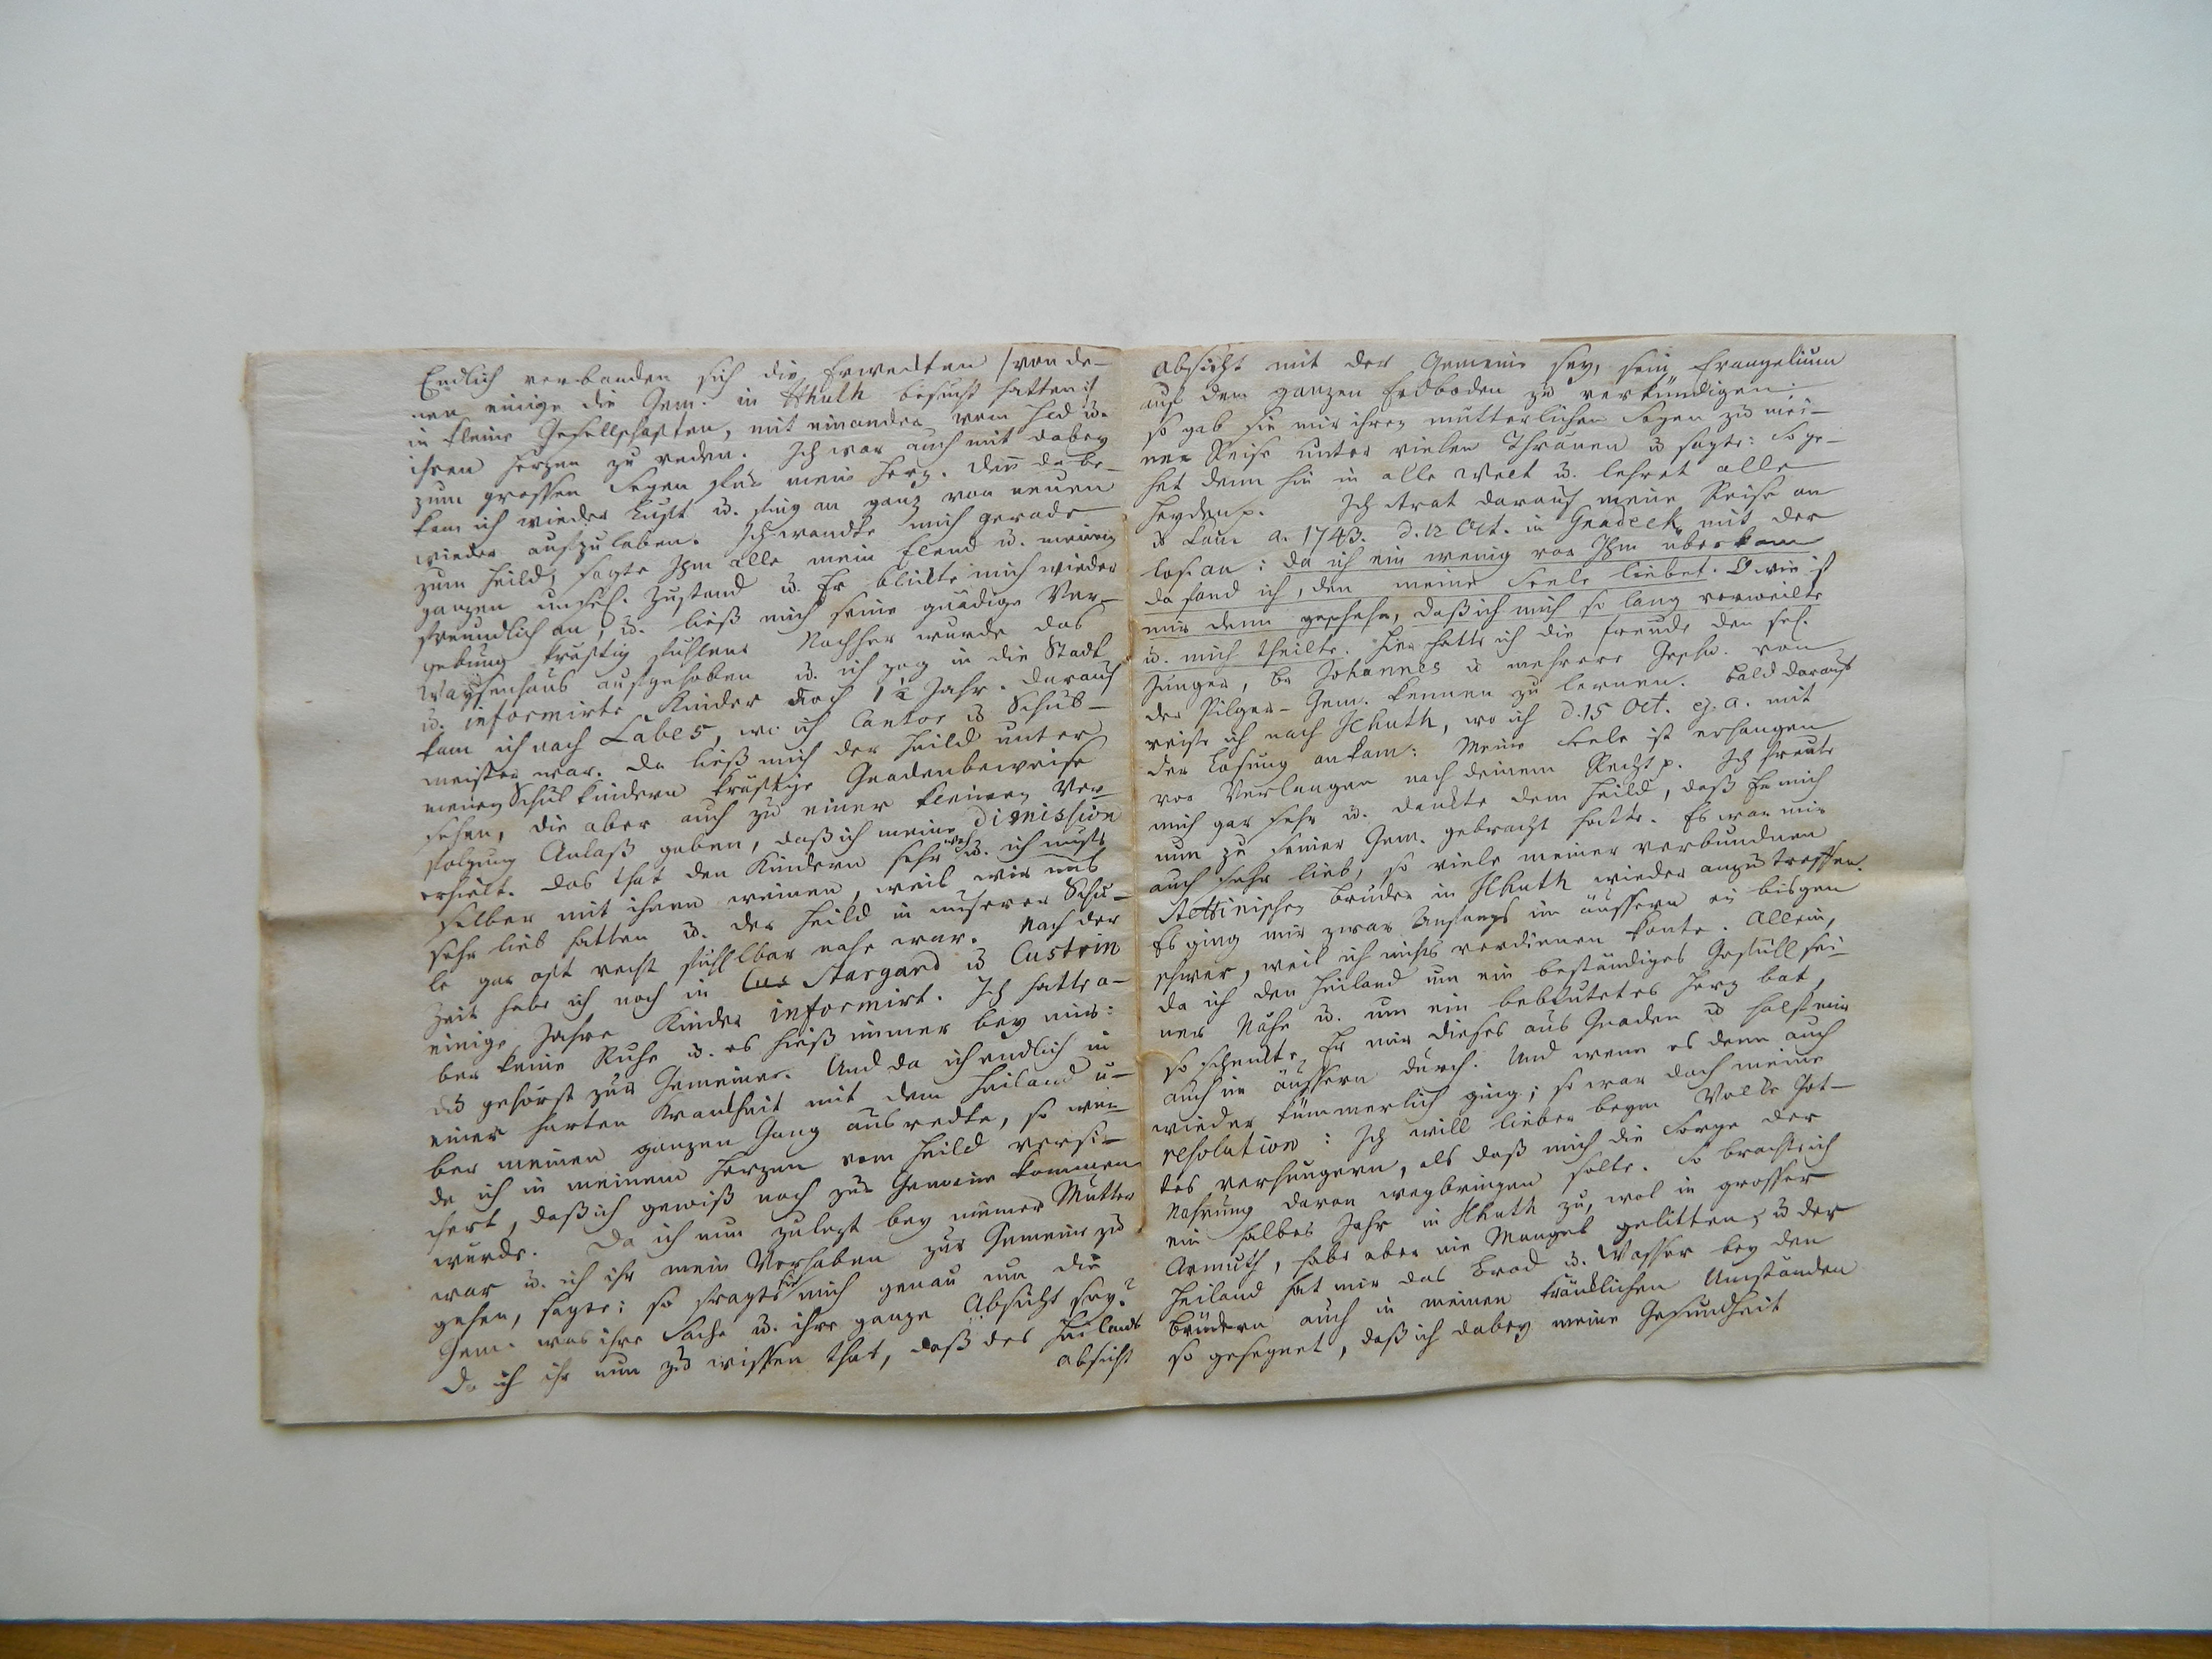 Endlich verbanden sich die Erwekten /:von de-
nen einige die Gem. in Hhuth besucht hatten:/
in kleine Gesellschaften, mit einander vom Hld u.
ihren Herzen zu reden. Ich war auch mit dabey
zum grossen Segen für mein Herz. Den da be-
kam ich wieder Lust u. fing an ganz von neuen
wieder aufzuleben. Ich wandte mich gerade
zum Heild, sagte Ihm alle mein Elend u. meinen
ganzen unsel. Zustand u. Er blikte mich wieder
freundlich an, u. ließ mich seine gnädige Ver-
gebung kräftig fühlen. Nachher wurde das
Waysenhaus aufgehoben u. ich zog in die Stadt
u. informirte Kinder noch 1 1/2 Jahr. Darauf
kam ich nach Labes, wo ich Cantor u Schul-
meister war. Da ließ mich der Heild unter
meinen Schulkindern kräftige Gnadenbeweise
sehen, die aber auch zu einer kleinen Ver-
folgung Anlaß gaben, daß ich meine Dimission
erhielt. Das that den Kindern sehr weh u. ich muste
selber mit ihnen weinen, weil wir uns
sehr lieb hatten u. der Heild in unserer Schu-
le gar oft recht fühlbar nahe war. Nach der
Zeit habe ich noch in Cus Stargard u Custrin
einige Jahre Kinder informirt. Ich hatte a-
ber keine Ruhe u. es hieß immer bey mir:
du gehörst zur Gemeine. Und da ich endlich in
einer harten Krankheit mit dem Heiland ü-
ber meinen ganzen Gang ausredte, so wur-
de ich in meinem Herzen vom Heild versi-
chert, daß ich gewiß noch zur Gemeine kommen
würde. Da ich nun zulezt bey meiner Mutter
war u. ich ihr mein Vorhaben zur Gemeine zu
gehen, sagte; so fragte sie mich genau um die
Gem. was ihre Sache u. ihre ganze Absicht sey?
Da ich ihr nun zu wissen that, daß des Heilands
Absicht
Absicht mit der Gemeine sey, sein Evangelium
auf dem ganzen Erdboden zu verkündigen;
so gab sie mir ihren mütterlichen Segen zu mei-
ner Reise unter vielen Thränen u sagte: So ge-
het denn hin in alle Welt u. lehret alle
Heyden p. Ich trat darauf meine Reise an
u kam a. 1743. d. 12 Oct. in Gnadeck mit der
Los. an: da ich ein wenig vor Ihm überkam
da fand ich, den meine Seele liebet. O wie ist
mir denn geschehn, daß ich mich so lang verweilte
u. mich theilte. Hier hatte ich die Freude den sel.
Jünger, Br Johannes u mehrere Geschw. von
der Pilger-Gem. kennen zu lernen. Bald darauf
reiste ich nach Hhuth, wo ich d. 15 Oct. ej. a. mit
der Losung ankam: Meine Seele ist erhangen
vor Verlangen nach deinem Recht p. Ich freute
mich gar sehr u. dankte dem Heild, daß Er mich
nun zu seiner Gem. gebracht hatte. Es war mir
auch sehr lieb, so viele meiner verbundnen
Stettinischen Brüder in Hhuth wieder anzutreffen.
Es ging mir zwar Anfangs im äussern ein bisgen
schwer, weil ich nichts verdienen konte. Allein,
da ich den Heiland um ein beständiges Gefühl sei-
ner Nähe u. um ein beblutetes Herz bat,
so schenkte Er mir dieses aus Gnaden u half mir
auch im äussern durch. Und wenn es denn auch
wieder kümmerlich ging; so war doch meine
resolution: Ich will lieber beym Volke Got-
tes verhungern, als daß mich die Sorge der
Nahrung davon wegbringen solte. So brachte ich
ein halbes Jahr in Hhuth zu, wol in grosser
Armuth, habe aber nie Mangel gelitten, u der
Heiland hat mir das Brod u. Wasser bey den
Brüdern auch in meinen kränklichen Umständen
so gesegnet, daß ich dabey meine Gesundheit